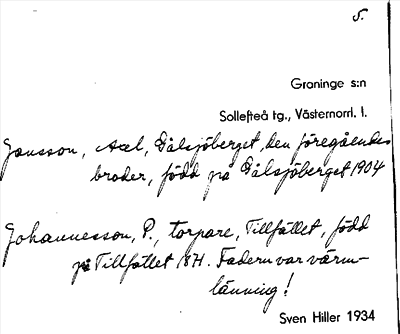 5.
Graninge s:n
Sollefteå tg., Västernorrl. l.
Jonsson, Axel, Gålsjöberget, den föregåendes
broder, född på Gålsjöberget 1904
Johannesson, P., torpare, Tillfället, född
på Tillfället 1871. Fadern var värm-
länning!
Sven Hiller 1934